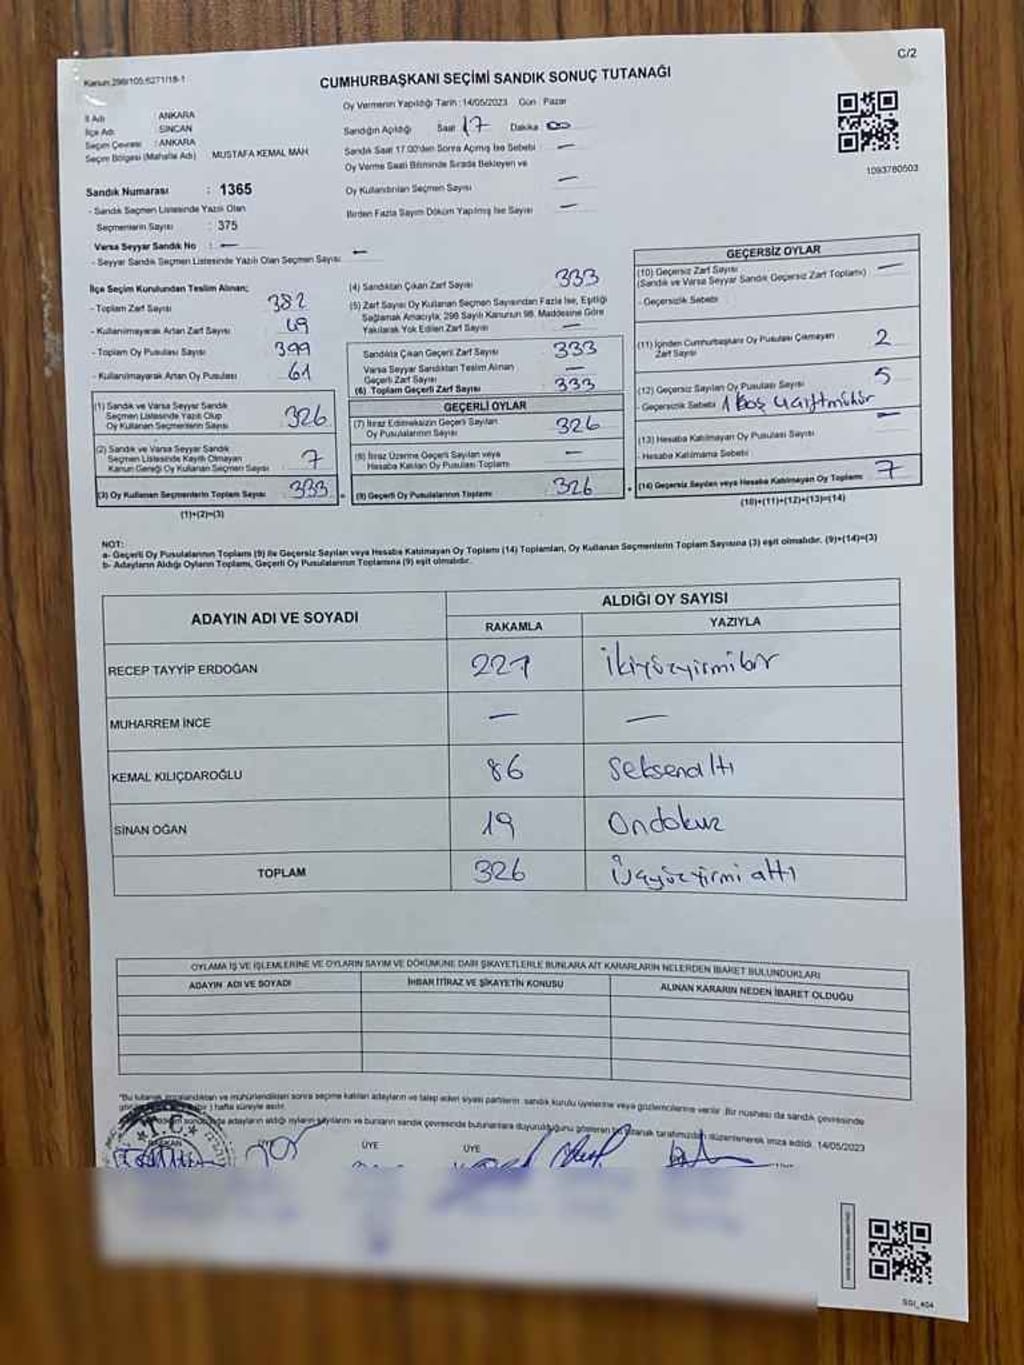 Kanun 298/105;6271/18-1
C/2
CUMHURBAŞKANI SEÇİMİ SANDIK SONUÇ TUTANAĞI
İl Adı : ANKARA
İlçe Adı : SİNCAN
Seçim Çevresi : ANKARA
Seçim Bölgesi (Mahalle Adı) MUSTAFA KEMAL MAH
Sandık Numarası : 1365
- Sandık Seçmen Listesinde Yazılı Olan
Seçmenlerin Sayısı : 375
Varsa Seyyar Sandık No : —
- Seyyar Sandık Seçmen Listesinde Yazılı Olan Seçmen Sayısı: —
Oy Vermenin Yapıldığı Tarih : 14/05/2023 Gün : Pazar
Sandığın Açıldığı Saat 17 Dakika 00
Sandık Saat 17.00'den Sonra Açılmış İse Sebebi : —
Oy Verme Saati Bitiminde Sırada Bekleyen ve
Oy Kullandırılan Seçmen Sayısı —
Birden Fazla Sayım Döküm Yapılmış İse Sayısı —
1093780503
İlçe Seçim Kurulundan Teslim Alınan;
- Toplam Zarf Sayısı 382
- Kullanılmayarak Artan Zarf Sayısı 49
- Toplam Oy Pusulası Sayısı 399
- Kullanılmayarak Artan Oy Pusulası 61
(1) Sandık ve Varsa Seyyar Sandık
Seçmen Listesinde Yazılı Olup
Oy Kullanan Seçmenlerin Sayısı 326
(2) Sandık ve Varsa Seyyar Sandık
Seçmen Listesinde Kayıtlı Olmayan
Kanun Gereği Oy Kullanan Seçmen Sayısı 7
(3) Oy Kullanan Seçmenlerin Toplam Sayısı 333
(1)+(2)=(3)
(4) Sandıktan Çıkan Zarf Sayısı 333
(5) Zarf Sayısı Oy Kullanan Seçmen Sayısından Fazla İse, Eşitliği
Sağlamak Amacıyla, 298 Sayılı Kanunun 98. Maddesine Göre
Yakılarak Yok Edilen Zarf Sayısı —
Sandıkta Çıkan Geçerli Zarf Sayısı 333
Varsa Seyyar Sandıktan Teslim Alınan
Geçerli Zarf Sayısı —
(6) Toplam Geçerli Zarf Sayısı 333
GEÇERLİ OYLAR
(7) İtiraz Edilmeksizin Geçerli Sayılan
Oy Pusulalarının Sayısı 326
(8) İtiraz Üzerine Geçerli Sayılan veya
Hesaba Katılan Oy Pusulası Toplamı —
(9) Geçerli Oy Pusulalarının Toplamı 326
GEÇERSİZ OYLAR
(10) Geçersiz Zarf Sayısı
(Sandık ve Varsa Seyyar Sandık Geçersiz Zarf Toplamı) —
- Geçersizlik Sebebi
(11) İçinden Cumhurbaşkanı Oy Pusulası Çıkmayan
Zarf Sayısı 2
(12) Geçersiz Sayılan Oy Pusulası Sayısı 5
- Geçersizlik Sebebi 1 Boş 4 çiftmühür
(13) Hesaba Katılmayan Oy Pusulası Sayısı —
- Hesaba Katılmama Sebebi
(14) Geçersiz Sayılan veya Hesaba Katılmayan Oy Toplamı 7
(10)+(11)+(12)+(13)=(14)
NOT:
a- Geçerli Oy Pusulalarının Toplamı (9) ile Geçersiz Sayılan veya Hesaba Katılmayan Oy Toplamı (14) Toplamları, Oy Kullanan Seçmenlerin Toplam Sayısına (3) eşit olmalıdır. (9)+(14)=(3)
b- Adayların Aldığı Oyların Toplamı, Geçerli Oy Pusulalarının Toplamına (9) eşit olmalıdır.
ADAYIN ADI VE SOYADI ALDIĞI OY SAYISI
RAKAMLA YAZIYLA
RECEP TAYYİP ERDOĞAN 221 İkiyüzyirmibir
MUHARREM İNCE — —
KEMAL KILIÇDAROĞLU 86 Seksenaltı
SİNAN OĞAN 19 Ondokuz
TOPLAM 326 Üçyüzyirmialtı
OYLAMA İŞ VE İŞLEMLERİNE VE OYLARIN SAYIM VE DÖKÜMÜNE DAİR ŞİKAYETLERLE BUNLARA AİT KARARLARIN NELERDEN İBARET BULUNDUKLARI
ADAYIN ADI VE SOYADI İHBAR İTİRAZ VE ŞİKAYETİN KONUSU ALINAN KARARIN NEDEN İBARET OLDUĞU
"Bu tutanak imzalandıktan ve mühürlendikten sonra seçime katılan adayların ve talep eden siyasi partilerin sandık kurulu üyelerine veya gözlemcilerine verilir. Bir nüshası da sandık çevresinde
hafta süreyle asılır.
adayların aldığı oyların sayılarını ve bunların sandık çevresinde bulunanlara duyurulduğunu gösteren bu tutanak tarafımızdan düzenlenerek imza edildi. 14/05/2023
T.C.
BAŞKAN ÜYE ÜYE ÜYE
SGI_404